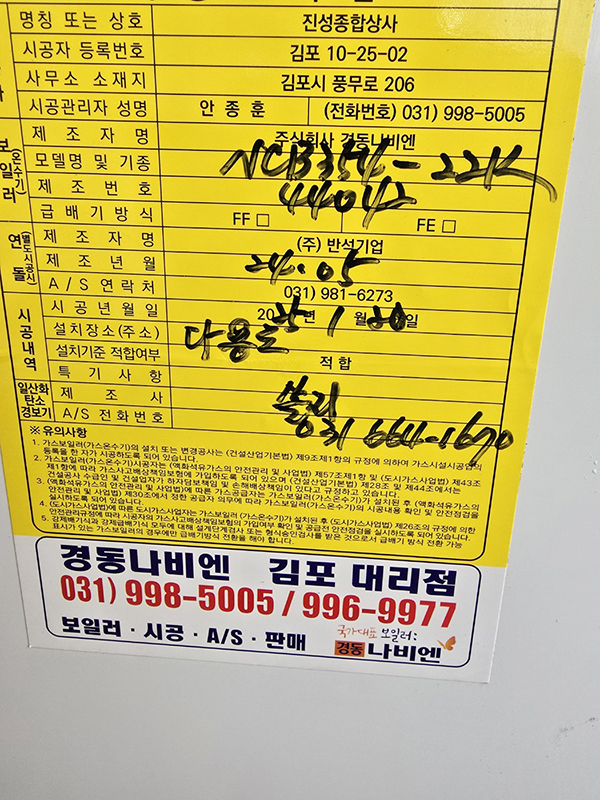 명칭 또는 상호 진성종합상사
시공자 등록번호 김포 10-25-02
사무소 소재지 김포시 풍무로 206
시공관리자 성명 안종훈 (전화번호) 031) 998-5005
보일러 (온수기)
제조자명 주식회사 경동나비엔
모델명 및 기종 NCB354-22K
제조번호 44042
급배기방식 FF □ FE □
연돌 (별도시공시)
제조자명 (주) 반석기업
제조년월 24.05
A/S 연락처 031) 981-6273
시공내역
시공년월일 20 25년 1월 20일
설치장소(주소) 다용도
설치기준 적합여부 적합
특기사항
일산화탄소 경보기
제조사
A/S 전화번호 031 664-1670
※ 유의사항
1. 가스보일러(가스온수기)의 설치 또는 변경공사는 (건설산업기본법) 제9조제1항의 규정에 의하여 가스시설시공업의
등록을 한 자가 시공하도록 되어 있습니다.
2. 가스보일러(가스온수기)시공자는 (액화석유가스의 안전관리 및 사업법) 제57조제1항 및 (도시가스사업법) 제43조
제1항에 따라 가스사고배상책임보험에 가입하도록 되어 있으며 (건설산업기본법) 제28조 및 제44조에서는
건설공사 수급인 및 건설업자가 하자담보책임 및 손해배상책임이 있다고 규정하고 있습니다.
3. (액화석유가스의 안전관리 및 사업법)에 따른 가스공급자는 가스보일러(가스온수기)의 시공내용 확인 및 안전점검을
안전관리 및 사업법) 제30조에서 정한 공급자 의무에 따라 가스보일러(가스온수기)가 설치된 후 (액화석유가스의
실시하도록 되어 있습니다.
4. (도시가스사업법)에 따른 도시가스사업자는 가스보일러 (가스온수기)가 설치된 후 (도시가스사업법) 제26조의 규정에 의한
안전관리규정에 따라 시공자의 가스사고배상책임보험의 가입여부 확인 및 공급전 안전점검을 실시하도록 되어 있습니다.
5. 강제배기식과 강제급배기식 모두에 대해 설계단계검사 또는 형식승인검사를 받은 것으로서 급배기 방식 전환 가능
표시가 있는 가스보일러의 경우에만 급배기방식 전환을 해야 합니다.
경동나비엔 김포 대리점
031) 998-5005 / 996-9977
보일러 · 시공 · A/S · 판매
국가대표 보일러:
경동 나비엔